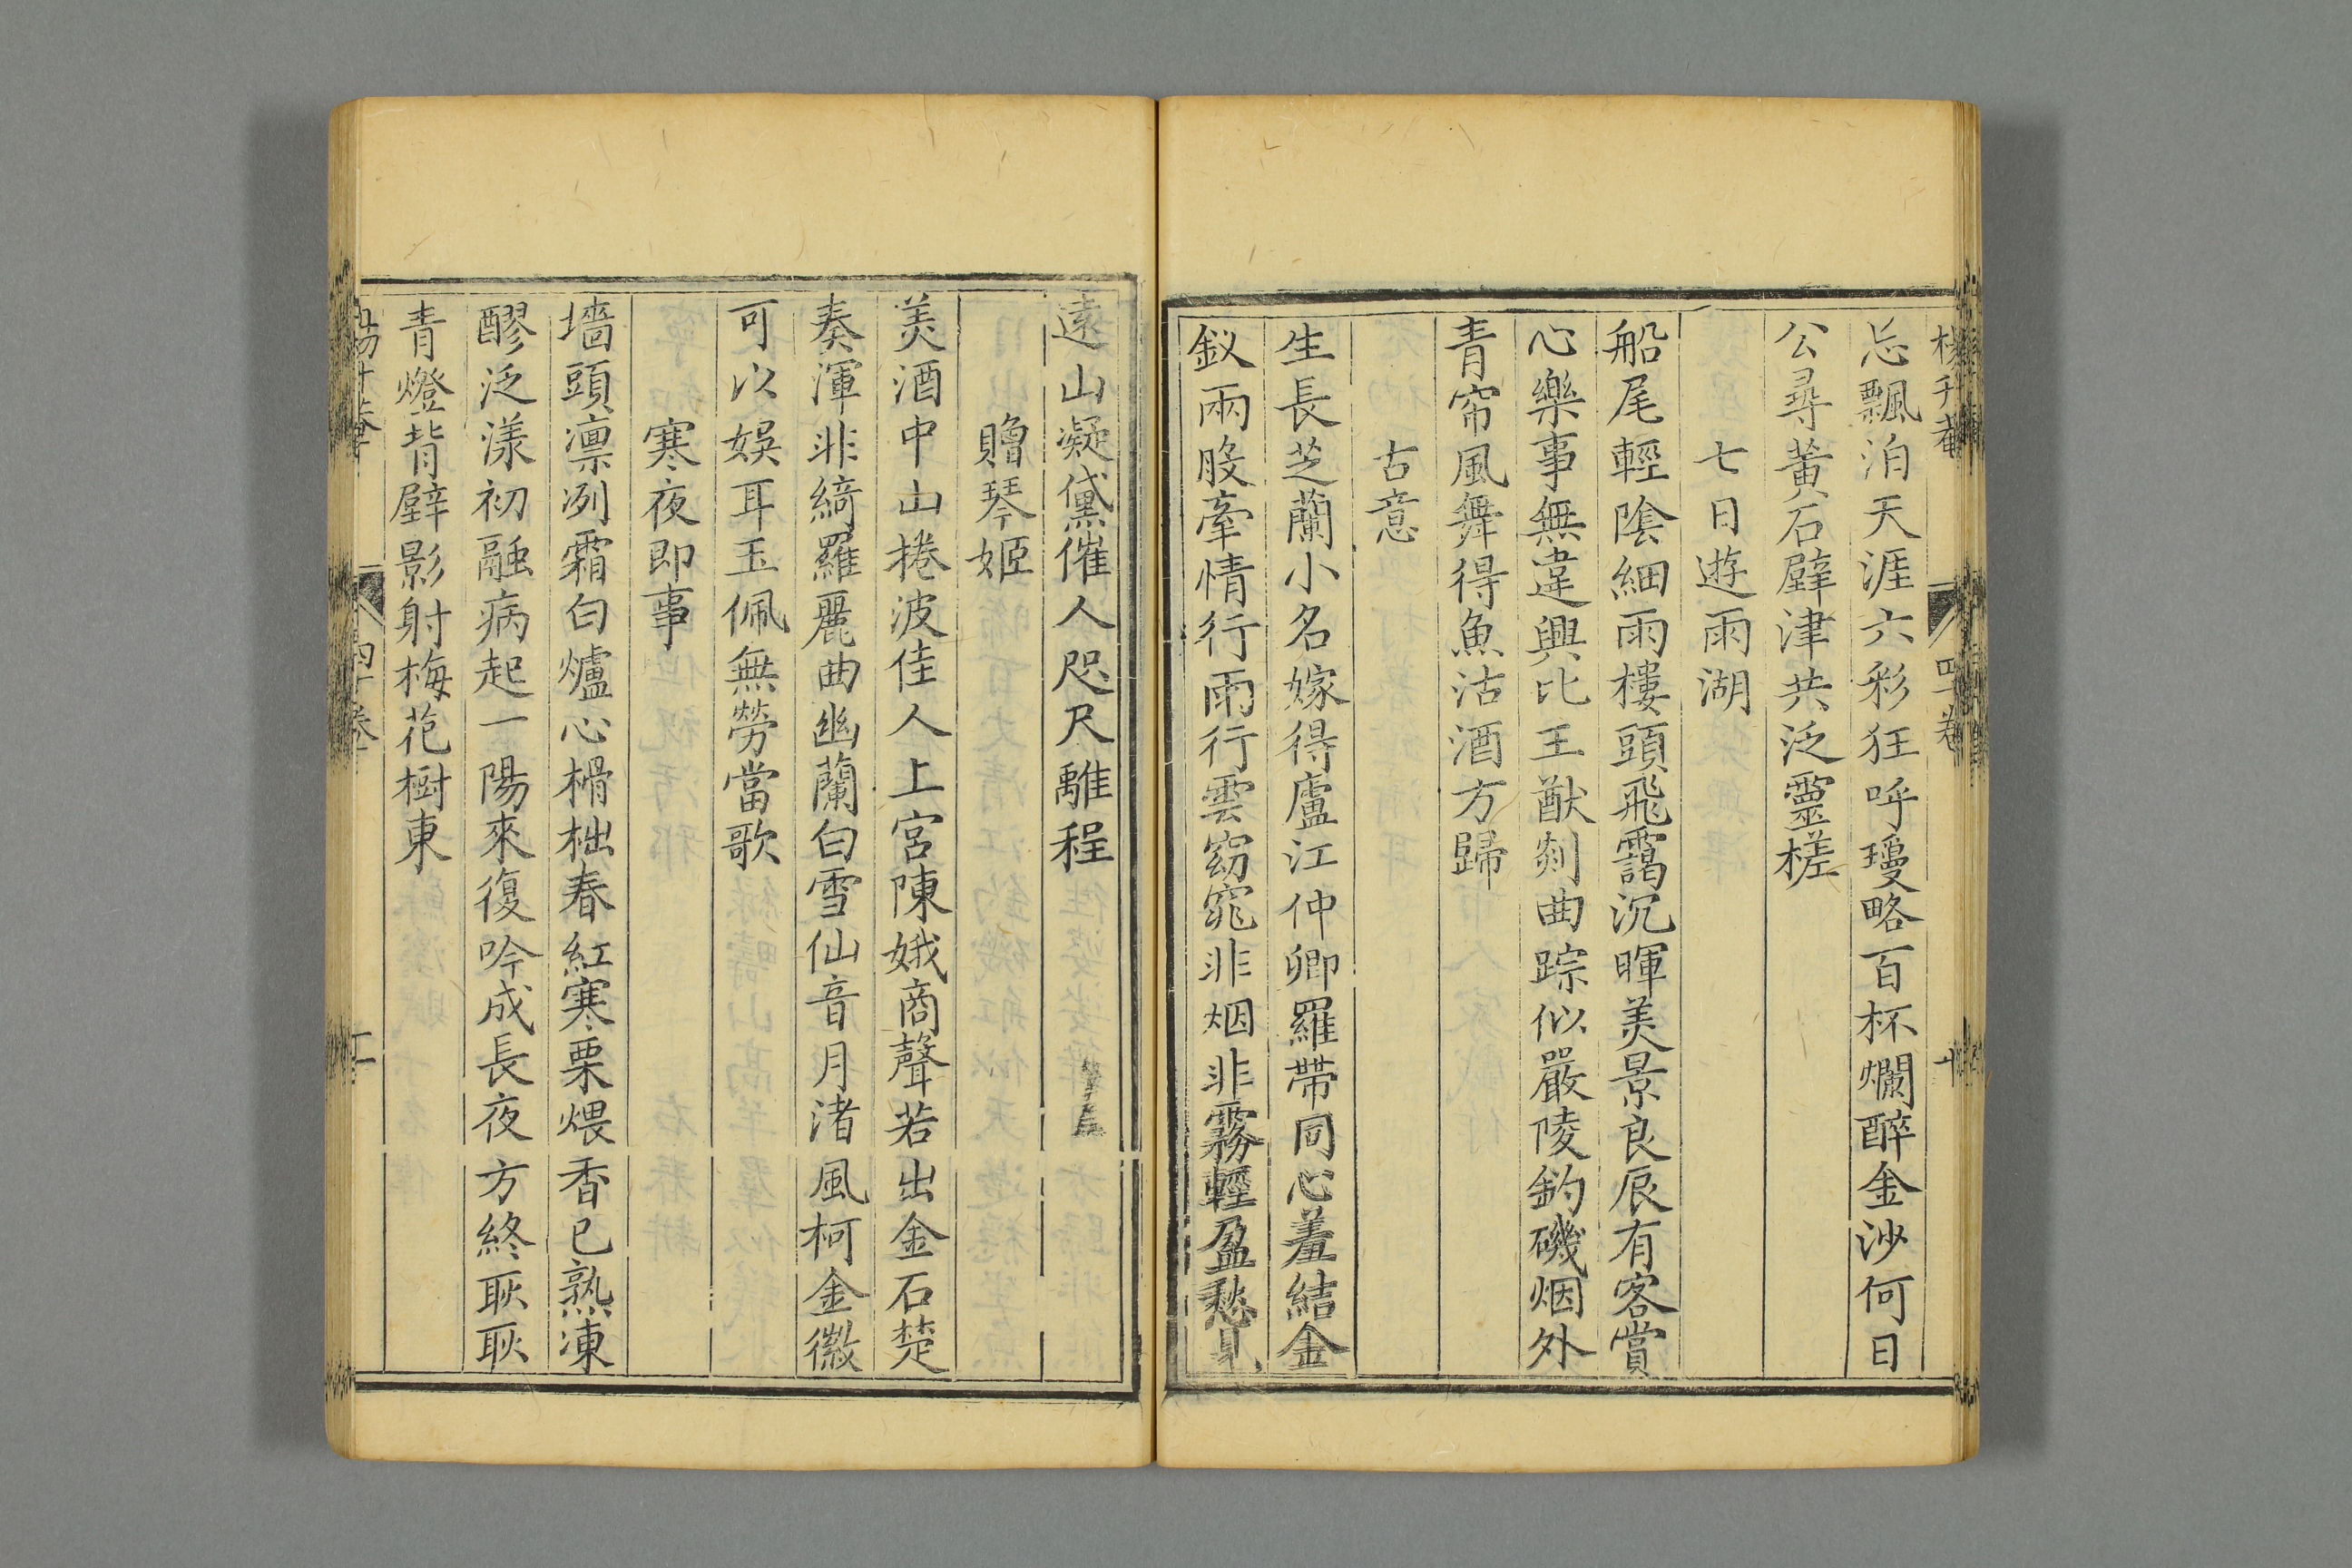 忘飄泊天涯六彩狂呼瓊略百杯爛醉金沙何日
公尋黃石壁津共泛靈槎
七日遊雨湖
船尾輕陰細雨樓頭飛靄沉暉美景良辰有客賞
心樂事無違興比王猷剡曲踪似嚴陵釣磯烟外
青帘風舞得魚沽酒方歸
古意
生長芝蘭小名嫁得盧江仲卿羅帶同心羞結金
釵兩股牽情行雨行雲窈窕非烟非霧輕盈愁見
遠山凝黛催人咫尺離程
贈琴姬
美酒中山捲波佳人上宮陳娥商聲若出金石楚
奏渾非綺羅麗曲幽蘭白雪仙音月渚風柯金徽
可以娛耳玉佩無勞當歌
寒夜即事
墻頭凛冽霜白爐心榾柮春紅寒栗煨香已熟凍
醪泛漾初融病起一陽來復吟成長夜方終耿耿
青燈背壁影射梅花樹東
四十卷